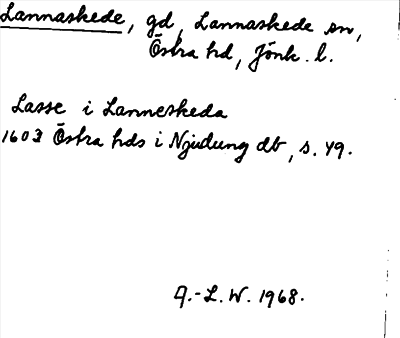 Lannaskede, gd, Lannaskede sn,
Östra hd, Jönk. l.
Lasse i Lanneskeda
1603 Östra hds i Njudung db, s. 49.
A.-L. W. 1968.